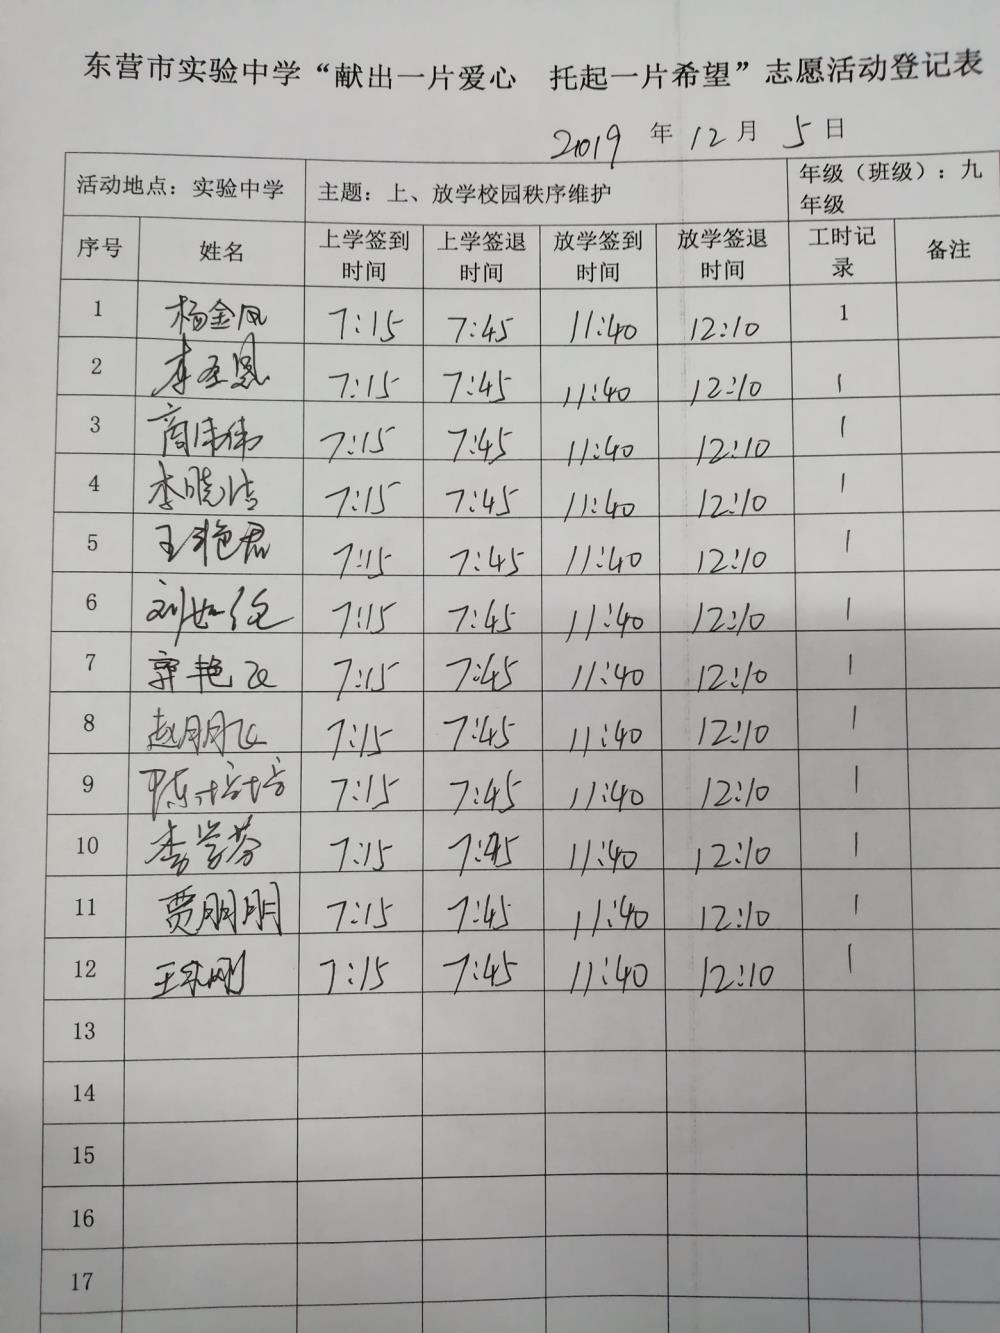 东营市实验中学“献出一片爱心 托起一片希望”志愿活动登记表
2019 年 12 月 5 日
活动地点：实验中学 主题：上、放学校园秩序维护 年级（班级）：九年级
序号 姓名 上学签到时间 上学签退时间 放学签到时间 放学签退时间 工时记录 备注
1 杨金凤 7:15 7:45 11:40 12:10 1
2 李圣恩 7:15 7:45 11:40 12:10 1
3 商伟伟 7:15 7:45 11:40 12:10 1
4 李晓洁 7:15 7:45 11:40 12:10 1
5 王艳君 7:15 7:45 11:40 12:10 1
6 7:15 7:45 11:40 12:10 1
7 郭艳飞 7:15 7:45 11:40 12:10 1
8 赵朋飞 7:15 7:45 11:40 12:10 1
9 陈培培 7:15 7:45 11:40 12:10 1
10 李学芬 7:15 7:45 11:40 12:10 1
11 贾朋朋 7:15 7:45 11:40 12:10 1
12 7:15 7:45 11:40 12:10 1
13
14
15
16
17